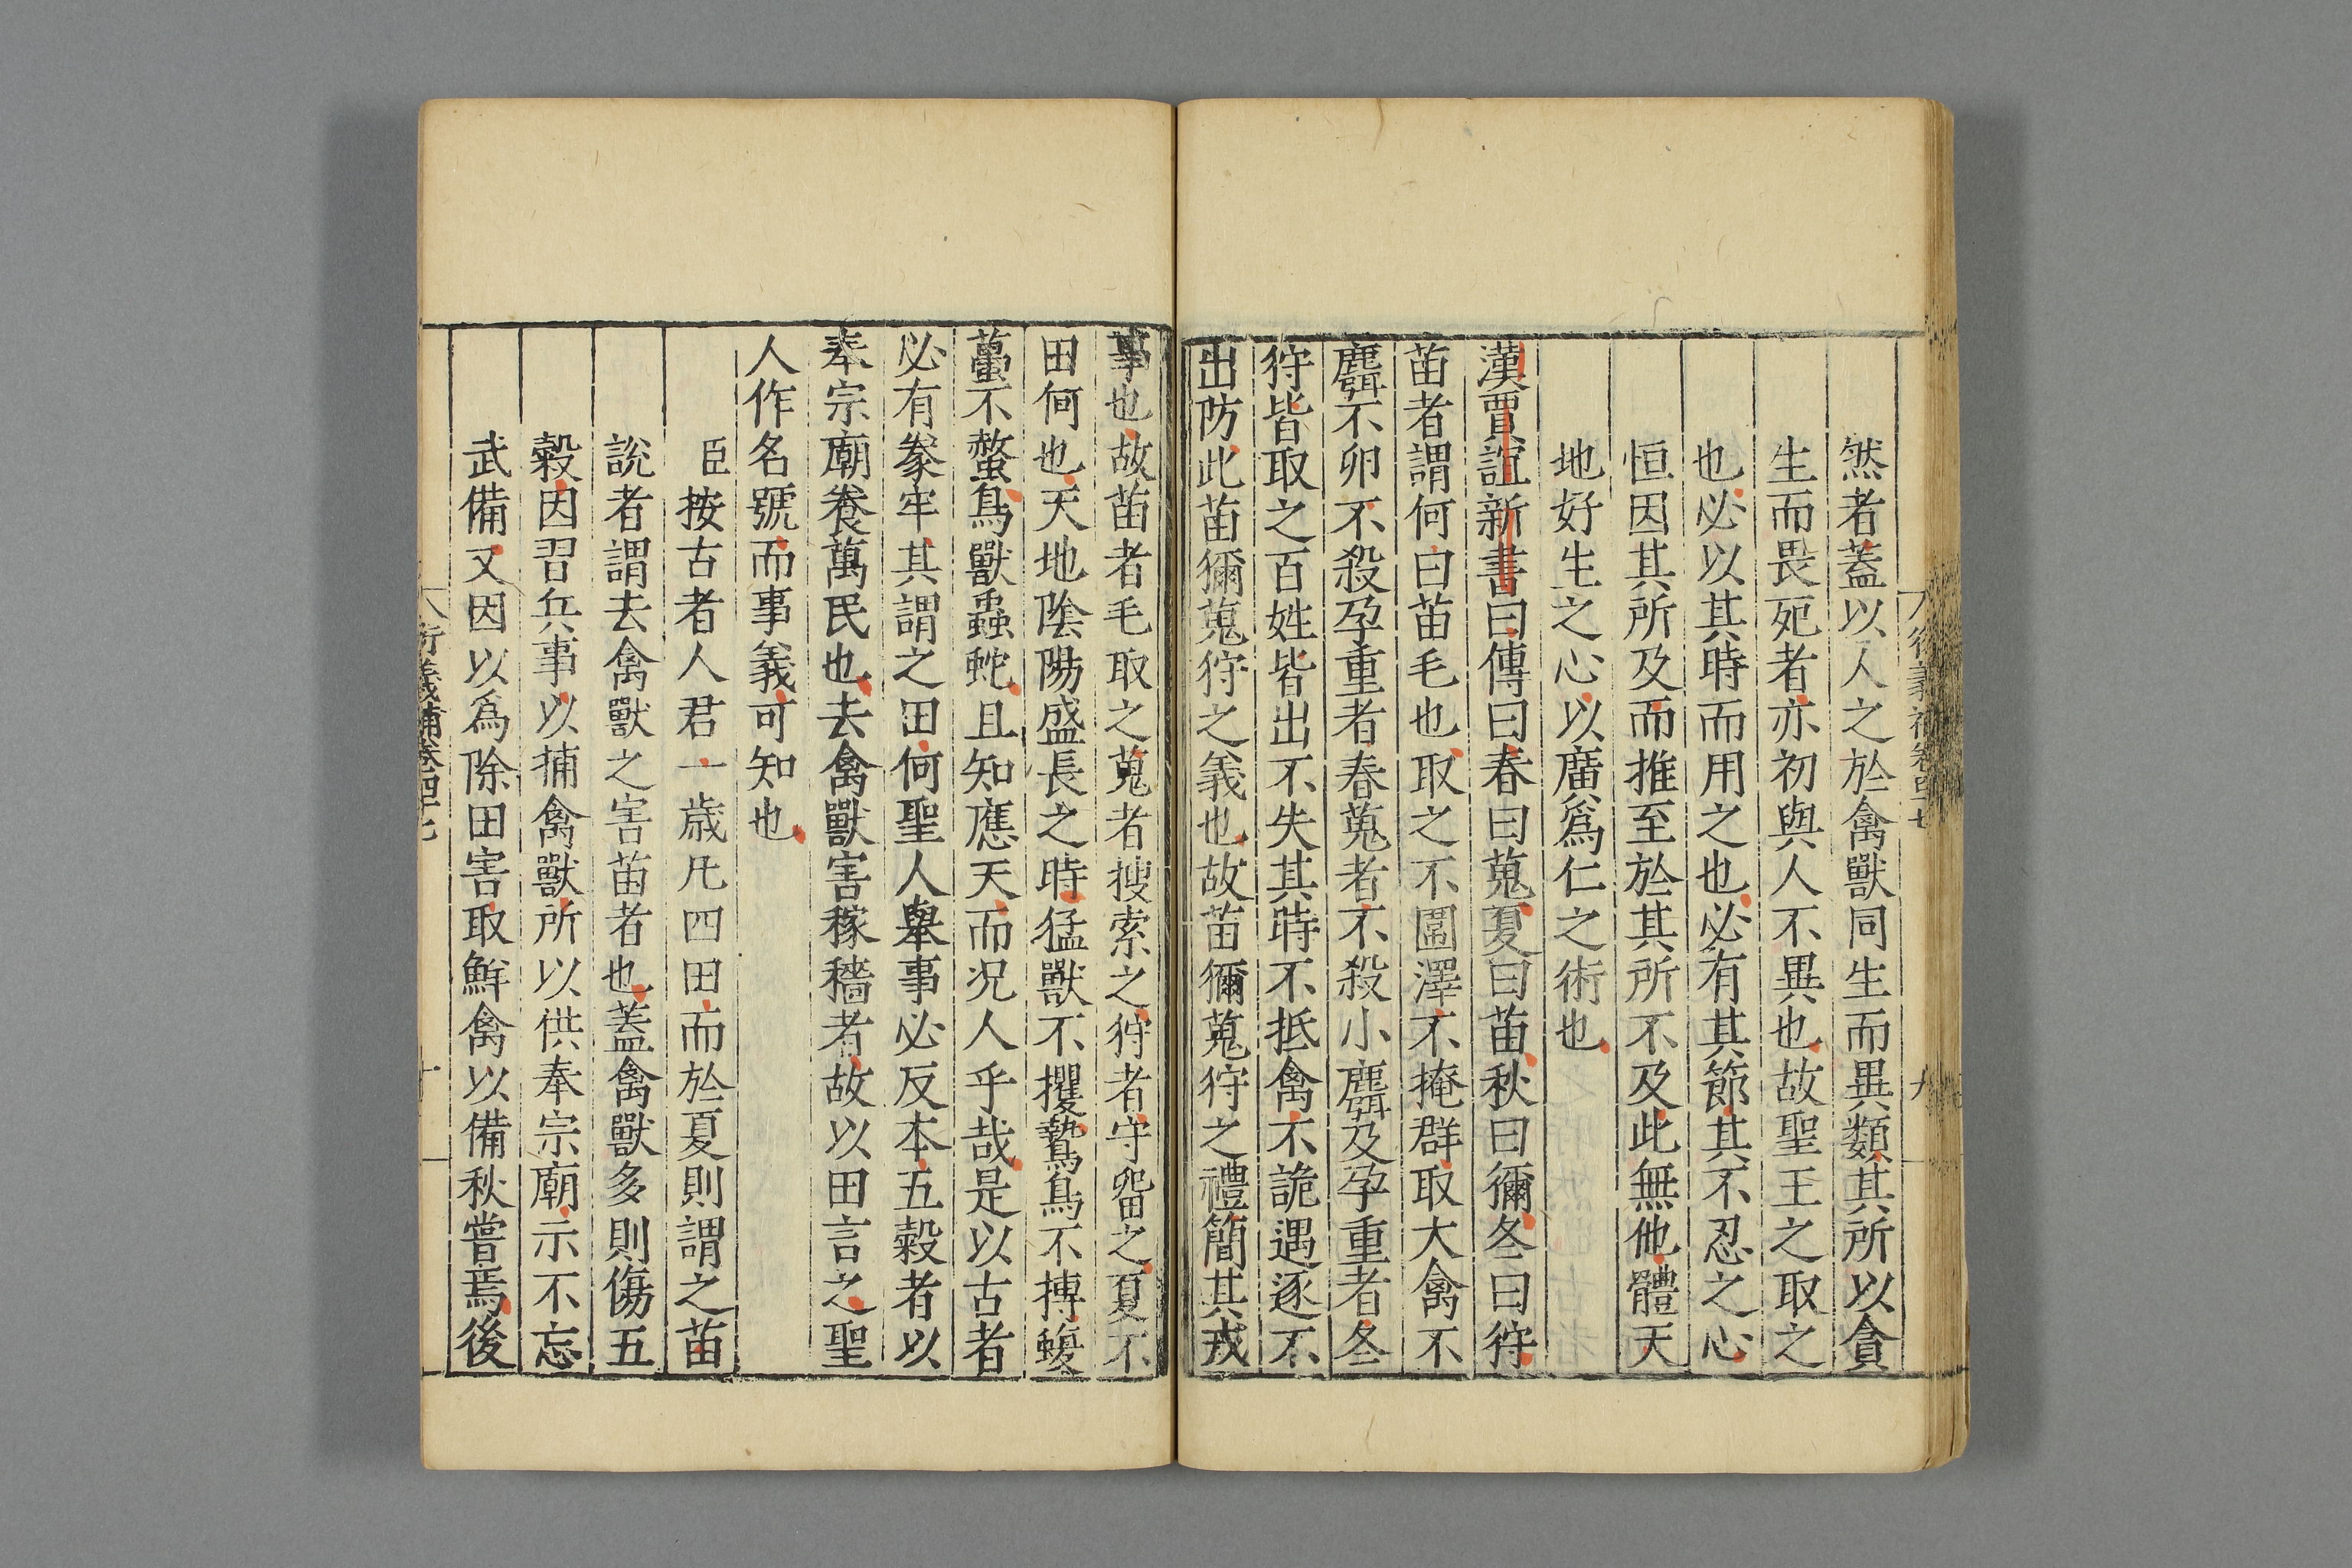 然者蓋以人之於禽獸同生而異類其所以貪
生而畏死者亦初與人不異也故聖王之取之
也必以其時而用之也必有其節其不忍之心
恒因其所及而推至於其所不及此無他體天
地好生之心以廣爲仁之術也
漢賈誼新書曰傳曰春曰蒐夏曰苗秋曰獮冬曰狩
苗者謂何曰苗毛也取之不圍澤不掩群取大禽不
麛不卵不殺孕重者春蒐者不殺小麛及孕重者冬
狩皆取之百姓皆出不失其時不抵禽不詭遇逐不
出防此苗獮蒐狩之義也故苗獮蒐狩之禮簡其戎
事也故苗者毛取之蒐者搜索之狩者守畱之夏不
田何也天地陰陽盛長之時猛獸不攫鷙鳥不搏蝮
蠆不螫鳥獸蟲蛇且知應天而况人乎哉是以古者
必有豢牢其謂之田何聖人舉事必反本五糓者以
奉宗廟養萬民也去禽獸害稼穡者故以田言之聖
人作名號而事義可知也
臣按古者人君一歲凡四田而於夏則謂之苗
說者謂去禽獸之害苗者也蓋禽獸多則傷五
糓因習兵事以捕禽獸所以供奉宗廟示不忘
武備又因以爲除田害取鮮禽以備秋嘗焉後
衍義補卷四十七